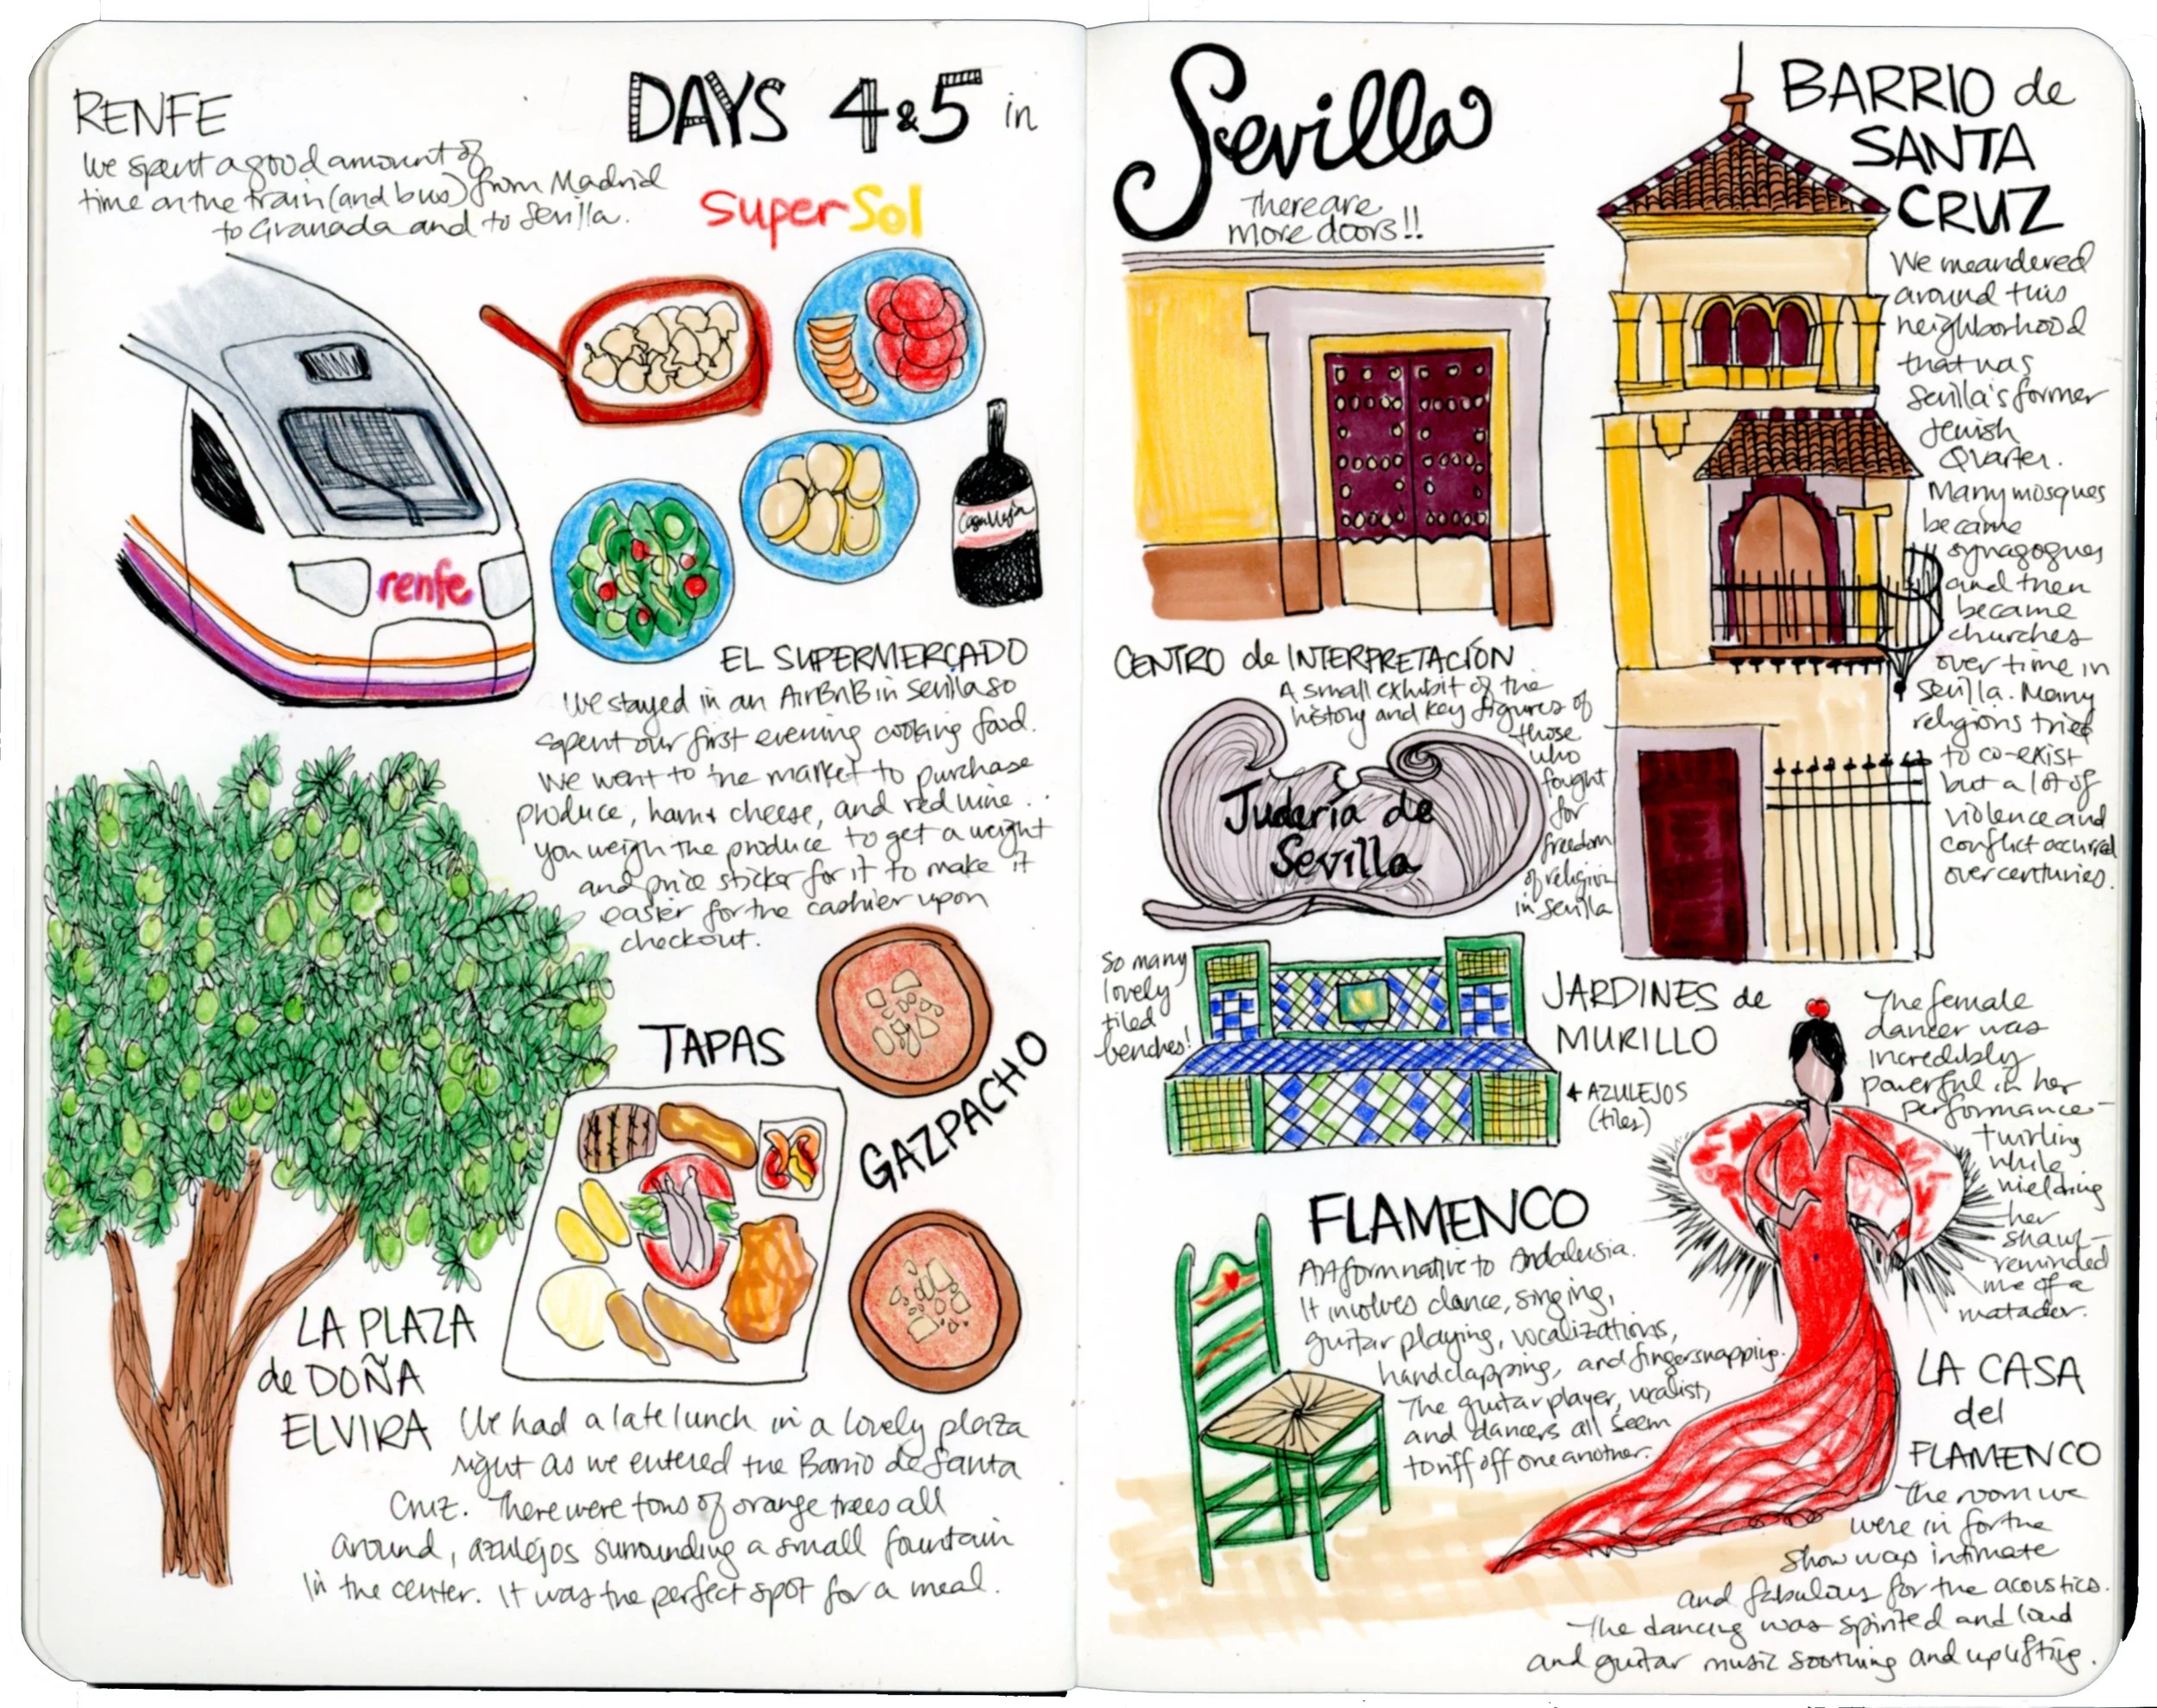 RENFE
We spent a good amount of
time on the train (and bus) from Madrid
to Granada and to Sevilla.
DAYS 4 & 5 in
SuperSol
renfe
EL SUPERMERCADO
We stayed in an AirBnB in Sevilla so
spent our first evening cooking food.
We went to the market to purchase
produce, ham & cheese, and red wine...
you weigh the produce to get a weight
and price sticker for it to make it
easier for the cashier upon
checkout.
TAPAS
GAZPACHO
LA PLAZA
de DOÑA
ELVIRA
We had a late lunch in a lovely plaza
right as we entered the Barrio de Santa
Cruz. There were tons of orange trees all
around, azulejos surrounding a small fountain
in the center. It was the perfect spot for a meal.
Sevilla
There are
more doors!!
CENTRO de INTERPRETACIÓN
A small exhibit of the
history and key figures of
those
who
fought
for
freedom
of religion
in Sevilla
Judería de
Sevilla
BARRIO de
SANTA
CRUZ
We meandered
around this
neighborhood
that was
Sevilla's former
Jewish
Quarter.
Many mosques
became
synagogues
and then
became
churches
over time in
Sevilla. Many
religions tried
to co-exist
but a lot of
violence and
conflict occured
over centuries.
So many
lovely
tiled
benches!
JARDINES de
MURILLO
← AZULEJOS
(tiles)
FLAMENCO
Art form native to Andalusia.
It involves dance, singing,
guitar playing, vocalizations,
handclapping, and fingersnapping.
The guitar player, vocalist,
and dancers all seem
to riff off one another.
The female
dancer was
incredibly
powerful in her
performance-
twirling
while
wielding
her
shawl-
reminded
me of a
matador.
LA CASA
del
FLAMENCO
The room we
were in for the
show was intimate
and fabulous for the acoustics.
The dancing was spirited and loud
and guitar music soothing and uplifting.